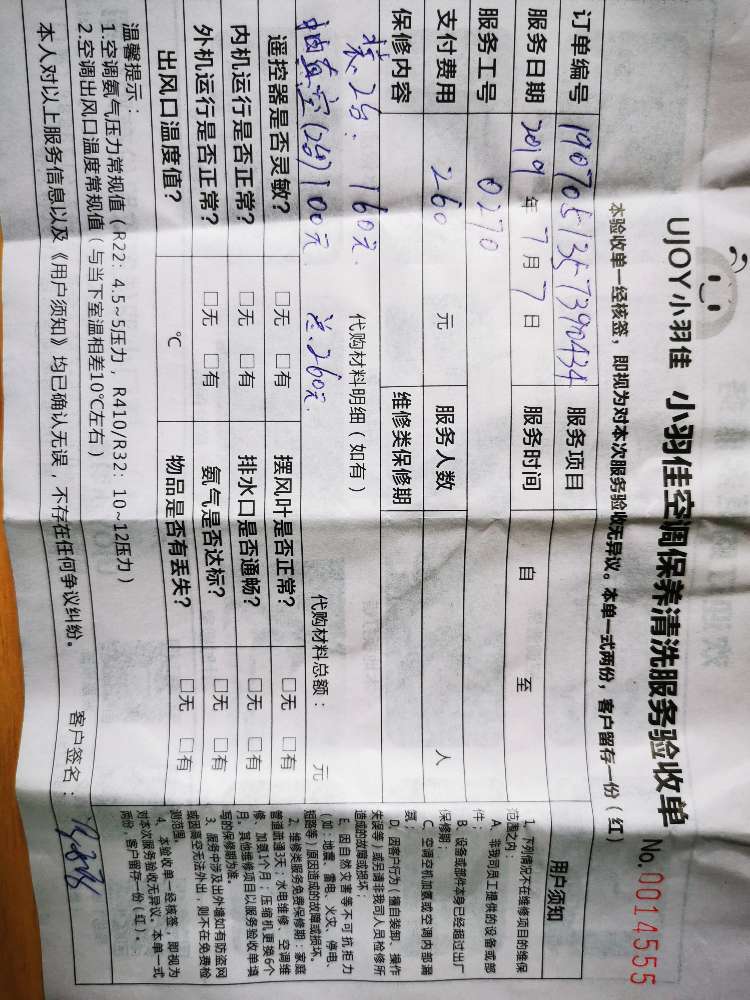 UJOY小羽佳 小羽佳空调保养清洗服务验收单 No.0014555
本验收单一经核签，即视为对本次服务验收无异议。本单一式两份，客户留存一份（红）
订单编号 1907051357390434 服务项目
服务日期 2019 年 7 月 7 日 服务时间 自 至
服务工号 0270
支付费用 260 元 服务人数 人
保修内容 维修类保修期
代购材料明细（如有） 代购材料总额： 元
装.2台. 160元.
抽真空(2台)100元 总.260元.
遥控器是否灵敏? □无 □有 摆风叶是否正常? □无 □有
内机运行是否正常? □无 □有 排水口是否通畅? □无 □有
外机运行是否正常? □无 □有 氨气是否达标? □无 □有
出风口温度值? ℃ 物品是否有丢失? □无 □有
温馨提示：
1.空调氨气压力常规值（R22：4.5~5压力，R410/R32：10~12压力）
2.空调出风口温度常规值（与当下室温相差10℃左右）
本人对以上服务信息以及《用户须知》均已确认无误，不存在任何争议纠纷。 客户签名：
用户须知
1、下列情况不在维修项目的维保
范围之内：
A、非我司员工提供的设备或部
件；
B、设备或部件本身已经超过出厂
保修期；
C、空调空机加氨或空调内部漏
氨；
D、因客户行为（擅自装卸、操作
失误等）或另请非我司人员检修所
造成的故障或损坏；
E、因自然灾害等不可抗拒力
（如：地震、雷电、火灾、停电、
短路等）原因造成的故障或损坏。
2、维修类服务免费保修期：家庭
管道疏通3天；水电维修、空调维
修、加氨1个月；压缩机更换6个
月。其他维修项目以服务验收单填
写的保修期为准。
3、服务中涉及出外墙如有防盗网
或因高空无法外出，则不在免费检
测范围。
4、本验收单一经核签，即视为
对本次服务验收无异议。本单一式
两份，客户留存一份（红）。